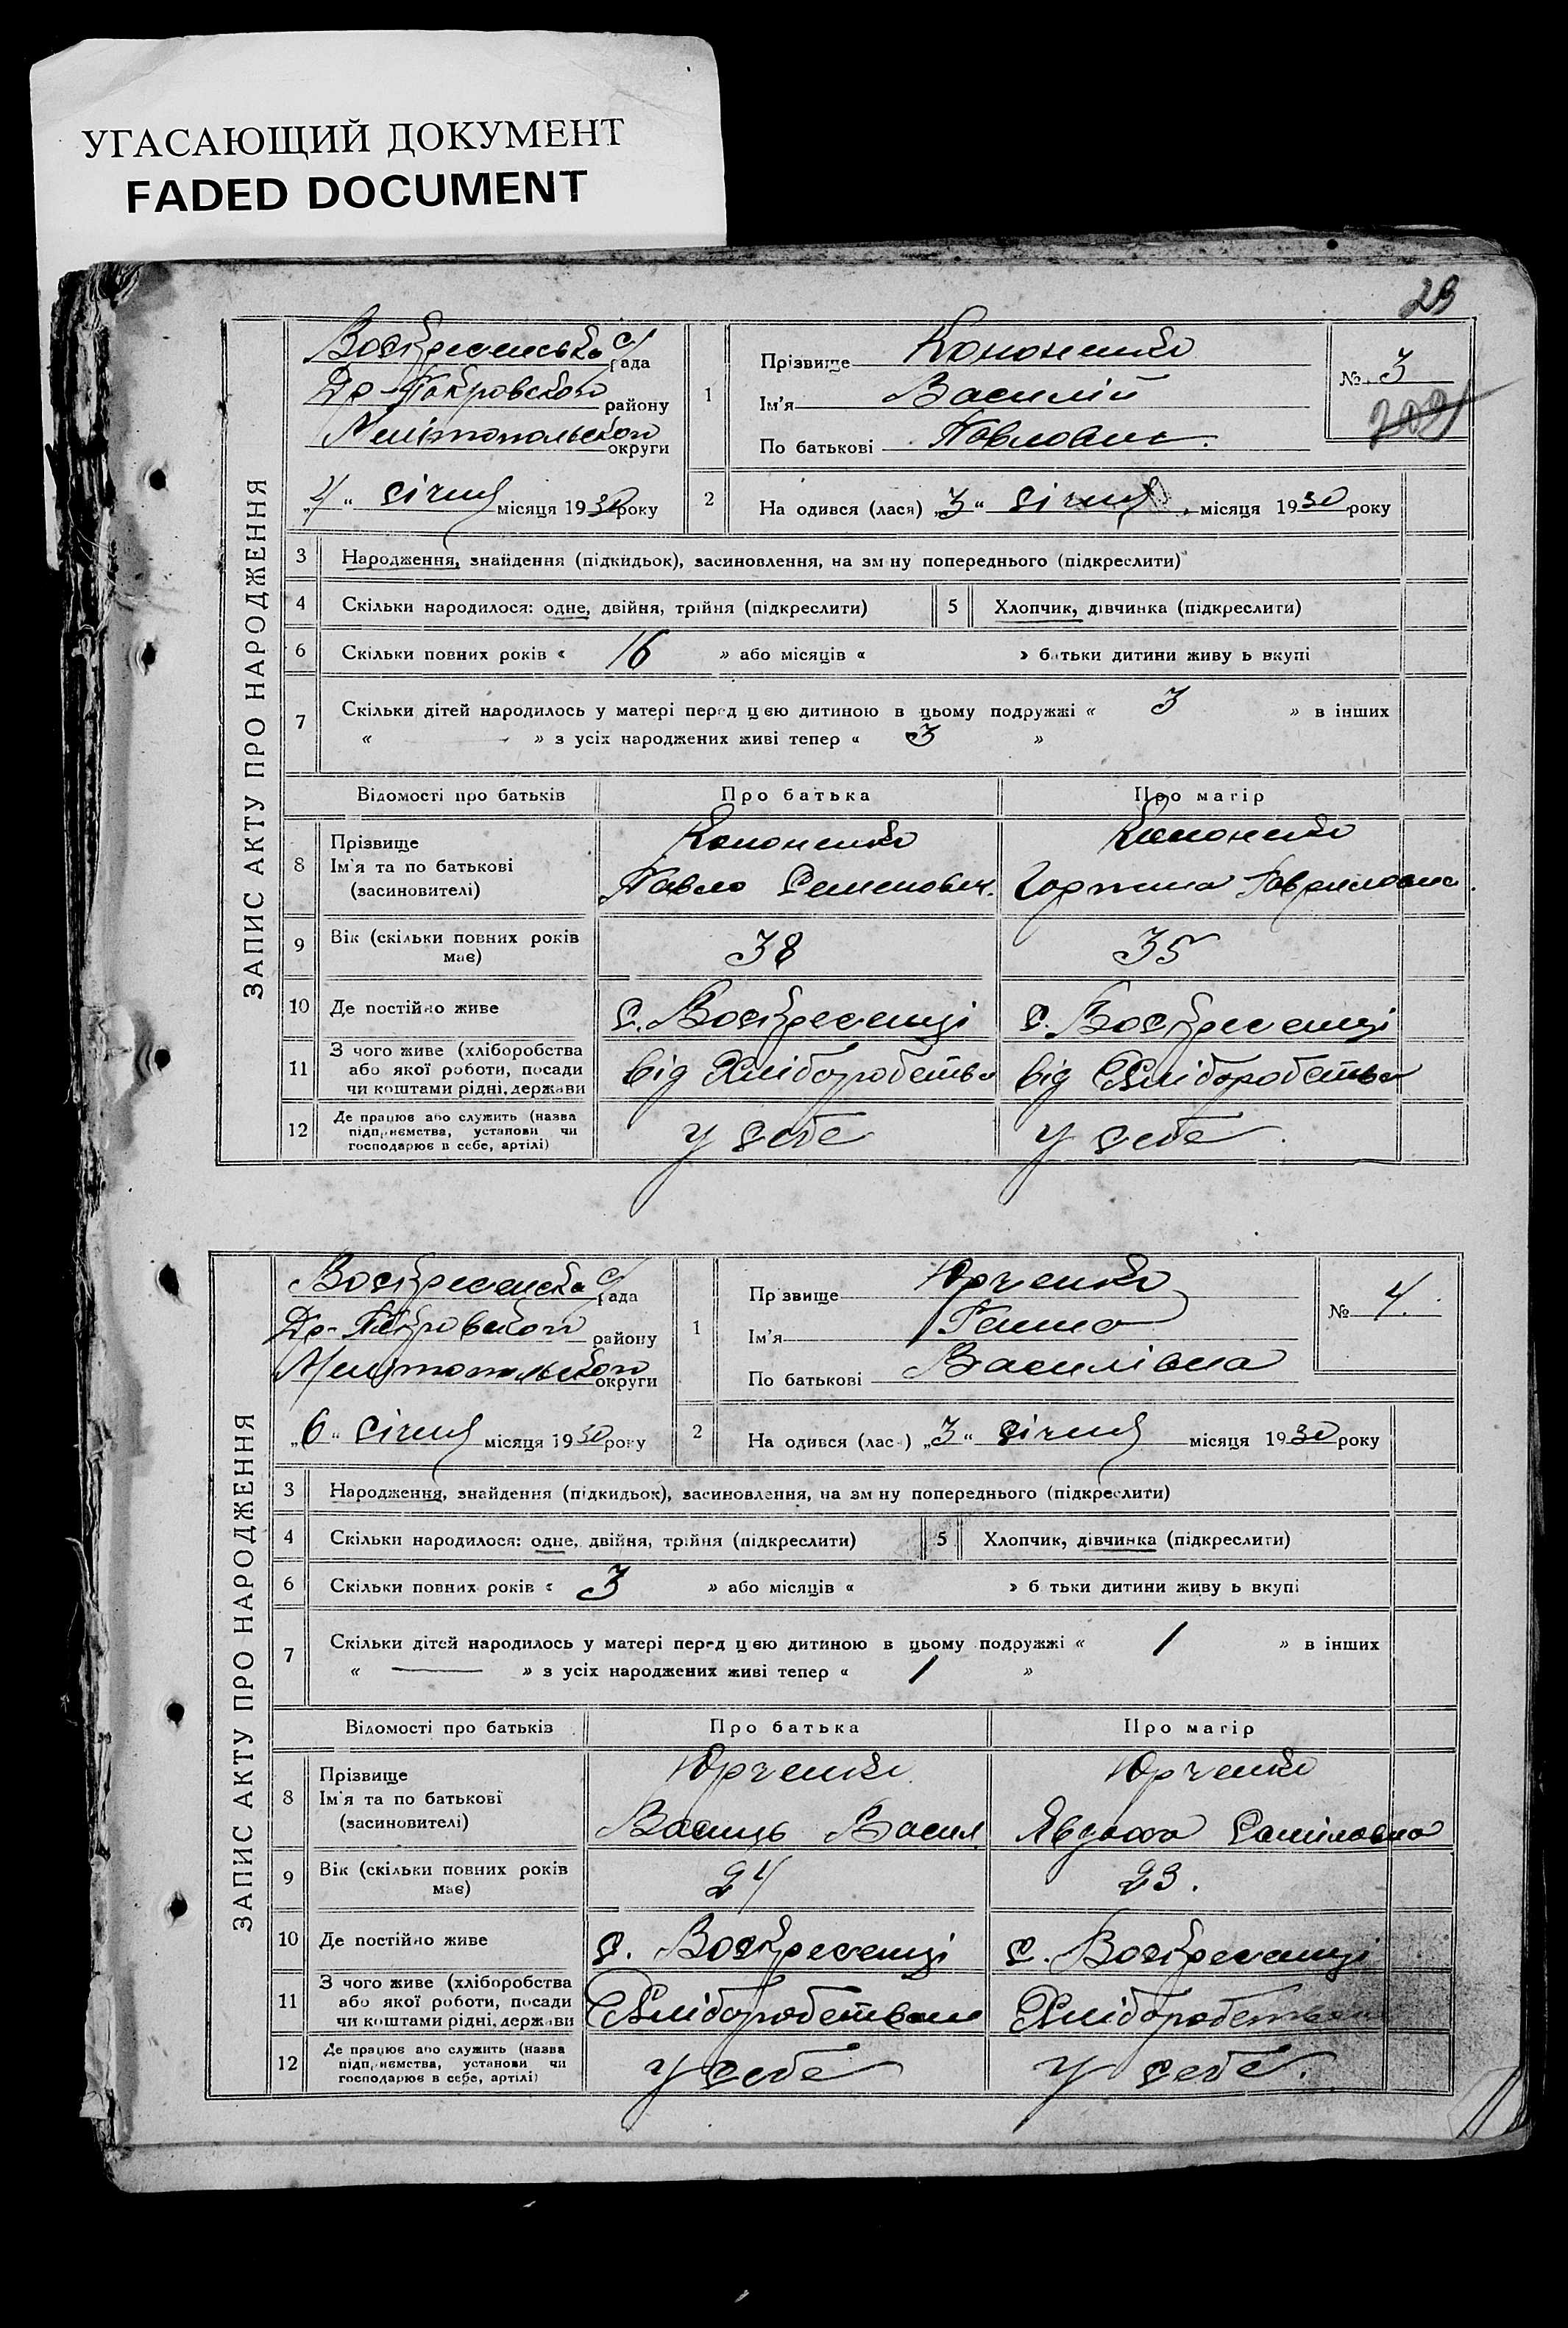 УГАСАЮЩИЙ ДОКУМЕНТ
FADED DOCUMENT
29
ЗАПИС АКТУ ПРО НАРОДЖЕННЯ
Воскресенська с/рада
Др-Покровского району
Мелітопольского округи
„4“ січня місяця 1930 року
1
Прізвище Кононенко
Ім'я Василій
По батькові Павлович.
№ 3
209
2 На одився (лася) „3“ січня місяця 1930 року
3 Народження, знайдення (підкидьок), засиновлення, на зм ну попереднього (підкреслити)
4 Скільки народилося: одне, двійня, трійня (підкреслити) 5 Хлопчик, дівчинка (підкреслити)
6 Скільки повних років « 16 » або місяців « » батьки дитини живу ь вкупі
7 Скільки дітей народилось у матері перед цею дитиною в цьому подружжі « 3 » в інших
« — » з усіх народжених живі тепер « 3 »
Відомості про батьків Про батька Про матір
8 Прізвище Ім'я та по батькові (засиновителі)
Кононенко Кононенко
Павло Семенович. Гавриловна
9 Вік (скільки повних років має) 38 35
10 Де постійно живе с. Воскресенці с. Воскресенці
11 З чого живе (хліборобства або якої роботи, посади чи коштами рідні, держави
від Хліборобства від Хліборобства
12 Де працює або служить (назва підприємства, установи чи господарює в себе, артілі)
у себе у себе
ЗАПИС АКТУ ПРО НАРОДЖЕННЯ
Воскресенська с/рада
Др-Покровского району
Мелітопольского округи
„6“ січня місяця 1930 року
1
Пр звище Юрченко
Ім'я Ганна
По батькові Василівна
№ 4.
2 На одився (лас ) „3“ січня місяця 1930 року
3 Народження, знайдення (підкидьок), засиновлення, на зм ну попереднього (підкреслити)
4 Скільки народилося: одне, двійня, трійня (підкреслити) 5 Хлопчик, дівчинка (підкреслити)
6 Скільки повних років « 3 » або місяців « » б тьки дитини живу ь вкупі
7 Скільки дітей народилось у матері перед цею дитиною в цьому подружжі « 1 » в інших
« — » з усіх народжених живі тепер « 1 »
Відомості про батьків Про батька Про матір
8 Прізвище Ім'я та по батькові (засиновителі)
Юрченко Юрченко
Василь Васил Явдоха
9 Вік (скільки повних років має) 24 23.
10 Де постійно живе с. Воскресенці с. Воскресенці
11 З чого живе (хліборобства або якої роботи, посади чи коштами рідні, держави
Хліборобством Хліборобством
12 Де працює або служить (назва підприємства, установи чи господарює в себе, артілі)
у себе у себе.